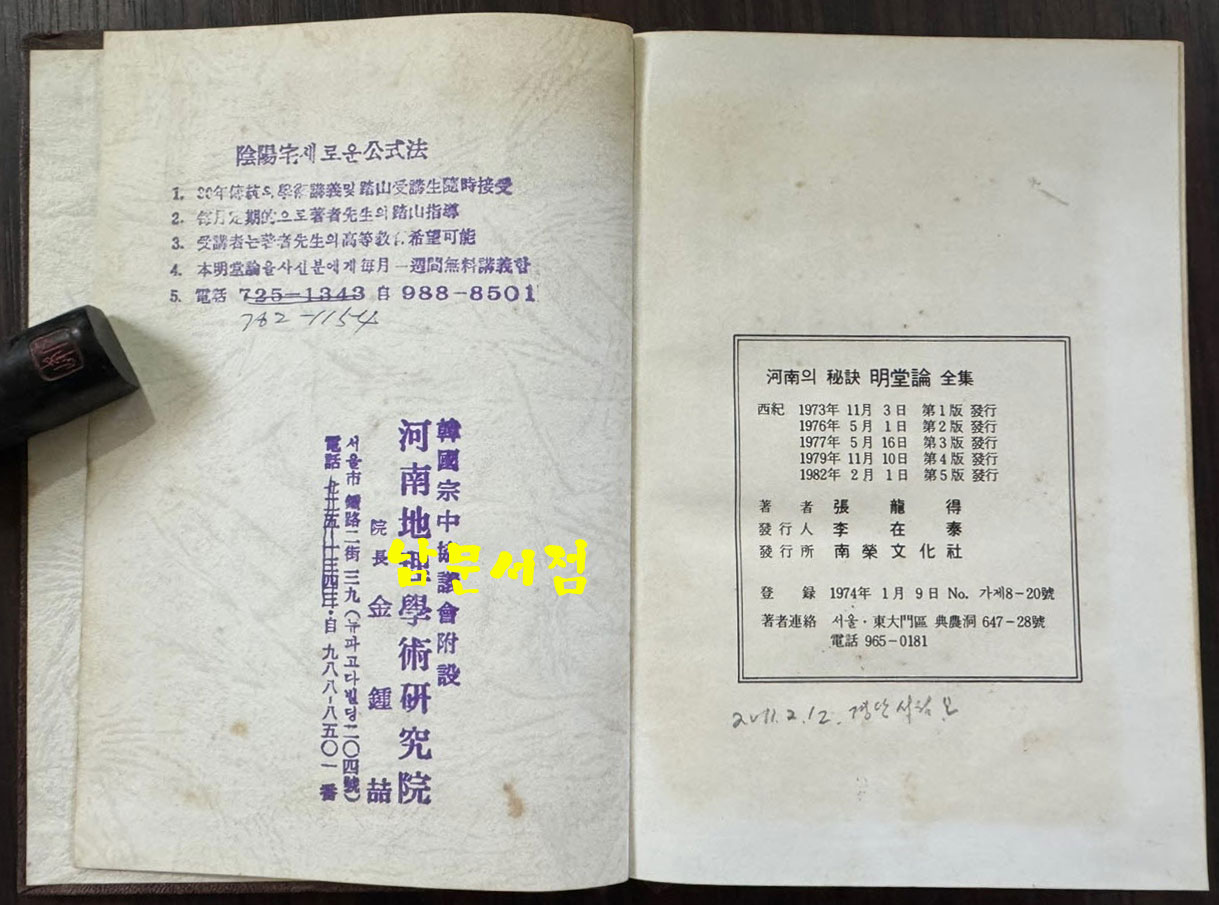 陰陽宅새로운公式法
1. 30年傳統의學術講義및踏山受講生隨時接受
2. 每月定期的으로著者先生의踏山指導
3. 受講者는著者先生의高等敎育希望可能
4. 本明堂論을사신분에게每月一週間無料講義함
5. 電話 725-1343 自 988-8501
782-1154
韓國宗中協議會附設
河南地理學術硏究院
院長 金鍾喆
서울市 鍾路二街 三九 (뉴파고다빌딩二〇四號)
電話 七二五-一三四三·自 九八八-八五〇一番
남문서점
河南의 秘訣 明堂論 全集
西紀 1973年 11月 3日 第1版 發行
1976年 5月 1日 第2版 發行
1977年 5月 16日 第3版 發行
1979年 11月 10日 第4版 發行
1982年 2月 1日 第5版 發行
著者 張龍得
發行人 李在泰
發行所 南榮文化社
登錄 1974年 1月 9日 No. 가제8-20號
著者連絡 서울·東大門區 典農洞 647-28號
電話 965-0181
2011.2.12.